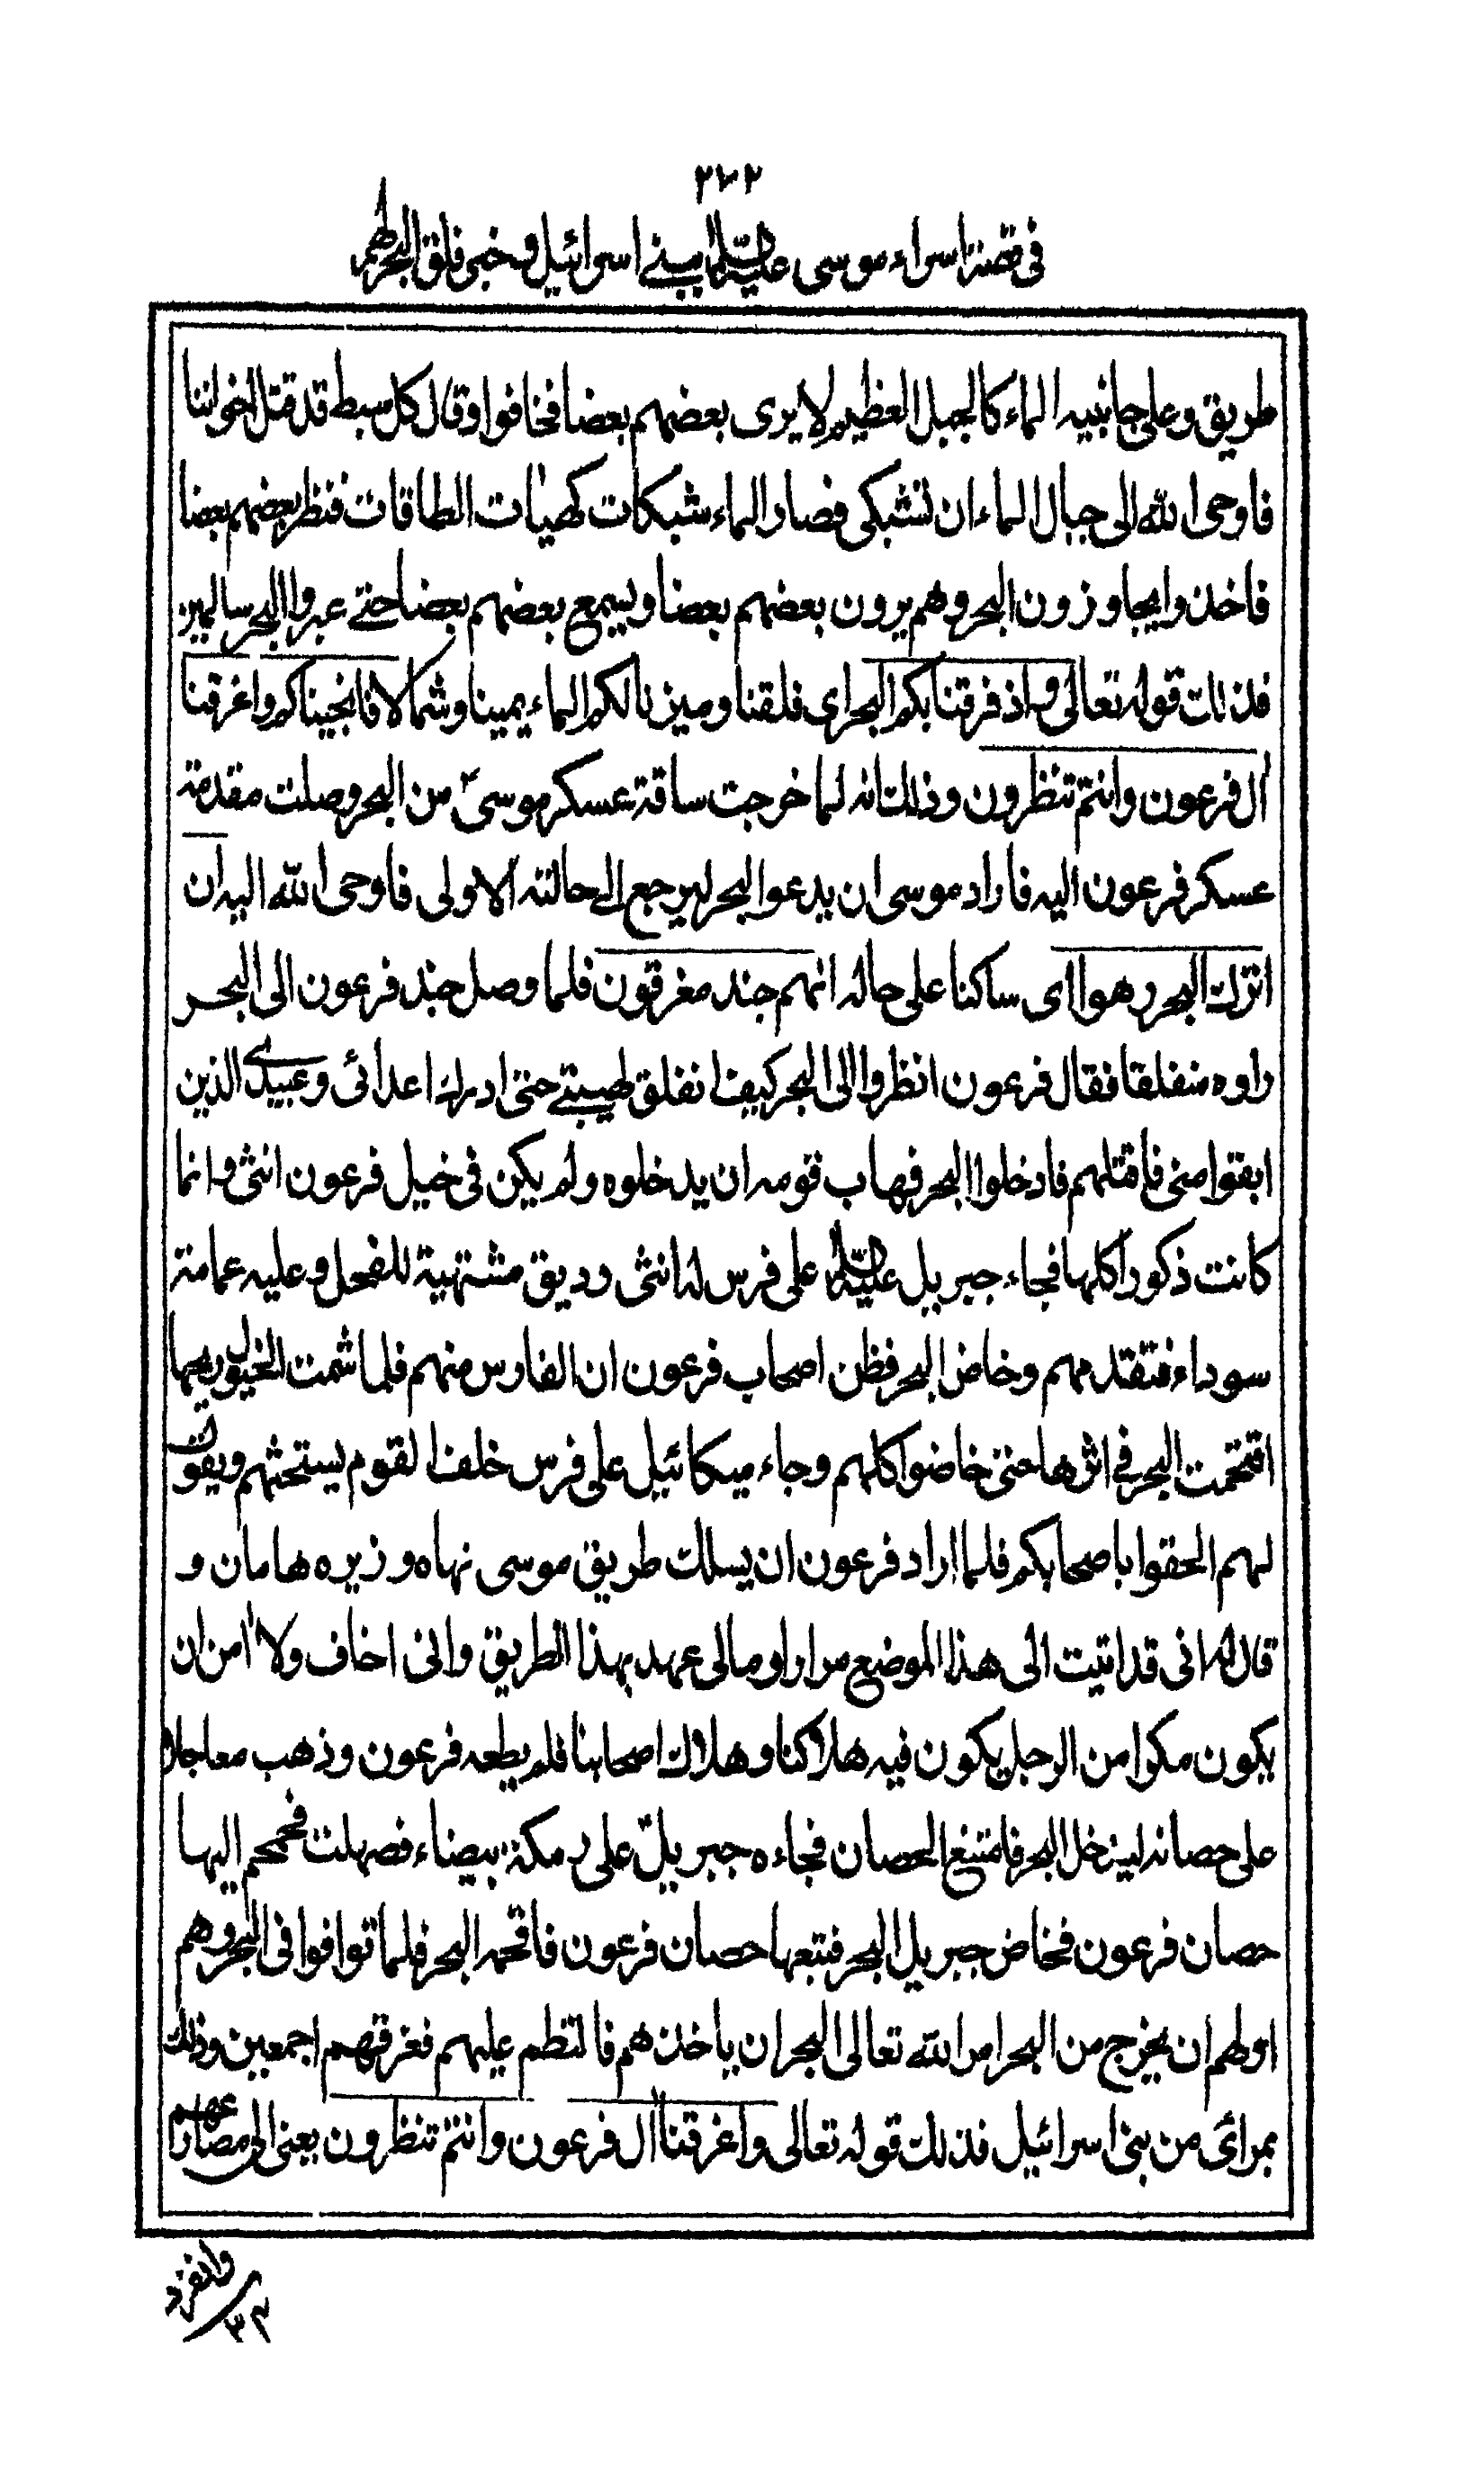 ٢٧٢
في قصة اسراء موسى عليه السلام ببني اسرائيل وخبر فلق البحر لهم
طريق وعلى جانبيه الماء كالجبل العظيم لا يرى بعضهم بعضا فخافوا وقال كل سبط قد قتل اخواننا
فاوحى الله الى جبال الماء ان تشبكى فصار الماء شبكات كهيأت الطاقات فنظر بعضهم بعضا
فاخذوا يجاوزون البحر وهم يرون بعضهم بعضا ويسمع بعضهم بعضا حتى عبروا البحر سالمين
فذلك قوله تعالى واذ فرقنا بكم البحر اى فلقنا وميزنا لكم الماء يمينا وشمالا فانجيناكم واغرقنا
آل فرعون وانتم تنظرون وذلك انه لما خرجت ساقة عسكر موسى من البحر وصلت مقدمة
عسكر فرعون اليه فاراد موسى ان يدعو البحر ليرجع الى حالته الاولى فاوحى الله اليه ان
اترك البحر رهوا اى ساكنا على حاله انهم جند مغرقون فلما وصل جند فرعون الى البحر
راوه منفلقا فقال فرعون انظروا الى البحر كيف انفلق لهيبتى حتى ادرك اعدائى وعبيدى الذين
ابقوا منى فاقتلهم فادخلوا البحر فهاب قومه ان يدخلوه ولم يكن فى خيل فرعون انثى وانما
كانت ذكورا كلها فجاء جبريل عليه السلام على فرس له انثى وديق مشتهية للفحل وعليه عمامة
سوداء فتقدمهم وخاض البحر فظن اصحاب فرعون ان الفارس منهم فلما شمت الخيول ريحها
اقتحمت البحر فى اثرها حتى خاضوا كلهم وجاء ميكائيل على فرس خلف القوم يستحثهم ويقول
لهم الحقوا باصحابكم فلما اراد فرعون ان يسلك طريق موسى نهاه وزيره هامان و
قال له انى قد اتيت الى هذا الموضع مرارا ومالى عهد بهذا الطريق وانى اخاف ولا آمن ان
يكون مكرا من الرجل يكون فيه هلاكنا وهلاك اصحابنا فلم يطعه فرعون وذهب معاجلا
على حصانه ليدخل البحر فامتنع الحصان فجاءه جبريل على رمكة بيضاء فصهلت فحمحم اليها
حصان فرعون فخاض جبريل البحر فتبعها حصان فرعون فاقحمه البحر فلما توافوا فى البحر وهم
اولهم ان يخرج من البحر امر الله تعالى البحر ان ياخذهم فالتطم عليهم فغرقهم اجمعين وذلك
بمرائ من بنى اسرائيل فذلك قوله تعالى واغرقنا آل فرعون وانتم تنظرون يعنى الى مصارعهم